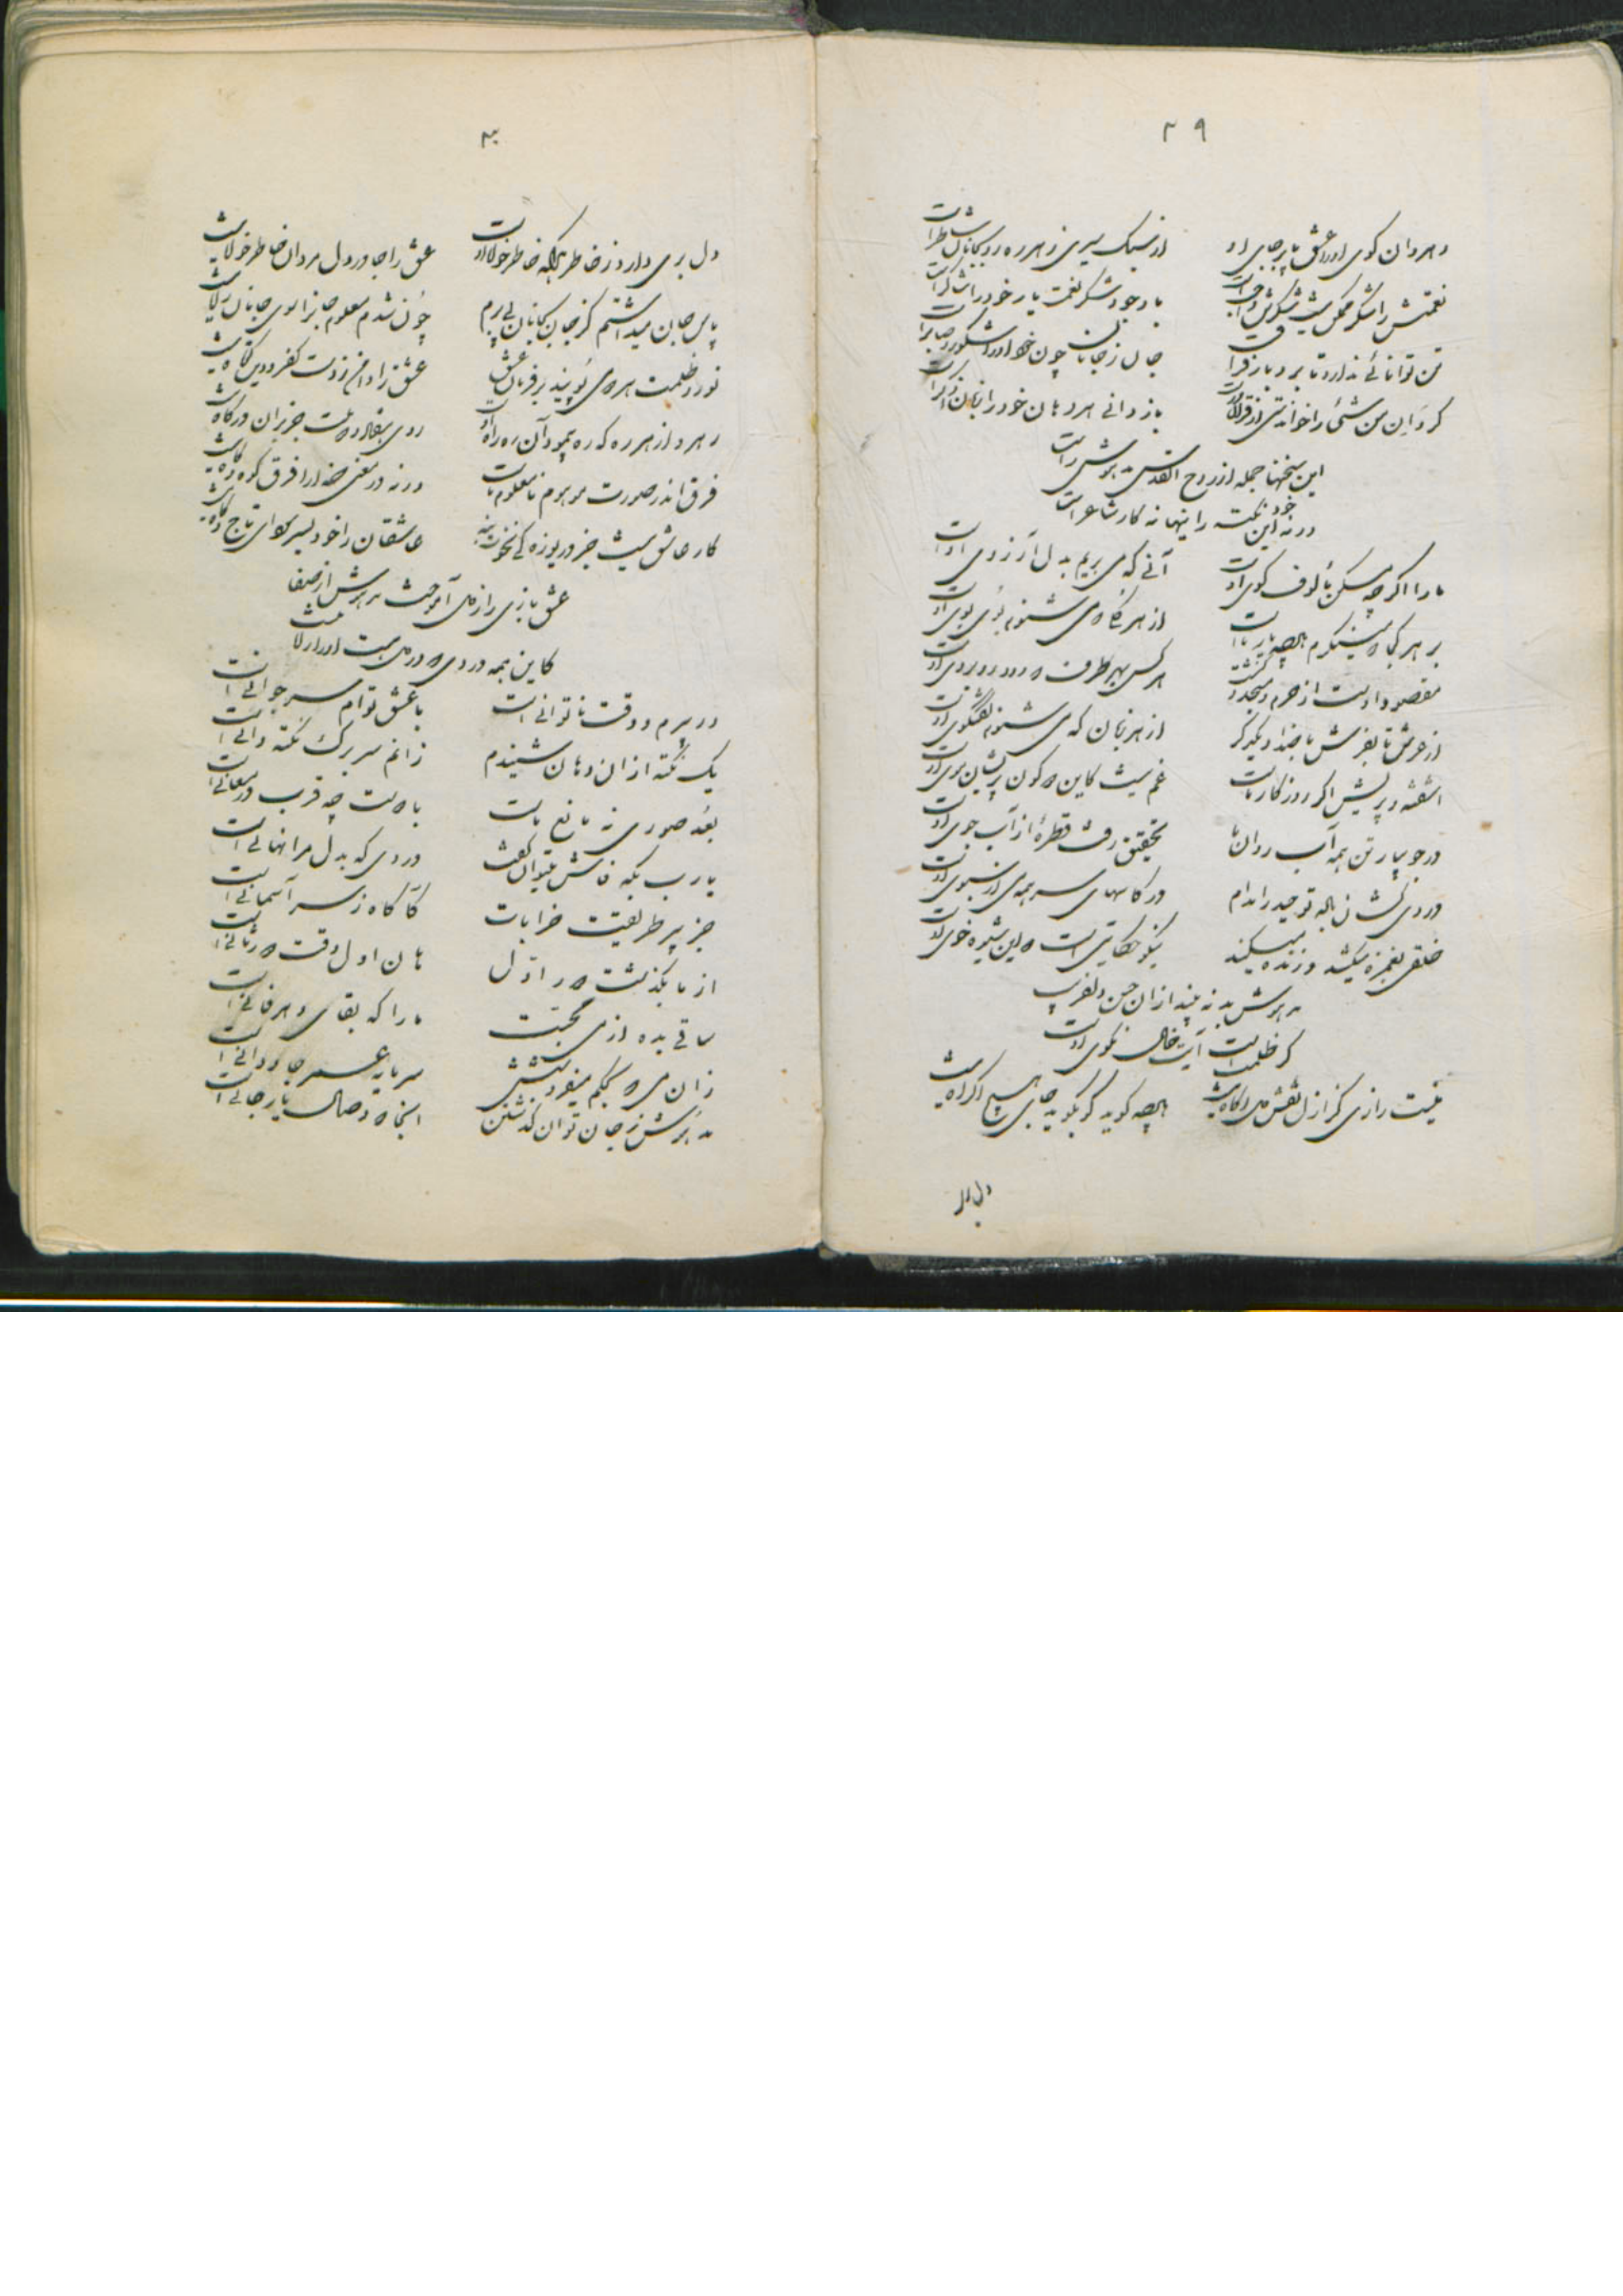 ۳۹
رهروان کوی او را عشق پا بر جای او
از سبک سیری زهر ره رو بجانان شاطر است
نعمتش را شکر ممکن نیست شکرش واجب است
با وجود شکر نعمت یار خود را شاکر است
تن توانائی ندارد تا برد بار فراق
جان ز جانان چون خدا او را شکور و صابر است
کز وان من شیء را خواندستی از قرآن
باز دانی هر دهان خود را زبان ذاکر است
این سخنها جمله از روح القدس مدهوش راست
ورنه این خود نکته را اینها نه کار شاعر است
ما را اگر چه مسکن مألوف کوی اوست
آنی که می بریم بدل آرزوی اوست
بر هر کجا که مینگرم یار ماست
از هر گیاه می شنوم بوی بوی اوست
مقصود اوست از حرم و مسجد و کنشت
هر کس بهر طرف که رود رو بروی اوست
از عرش تا بفرش با یکدگر
از هر زبان که می شنوم گفتگوی اوست
آشفته و پریش اگر روزگار ماست
غم نیست کاین که کون پریشان موی اوست
در جویبار تن همه آب روان ما
تحقیق رفت قطرهٔ از آب جوی اوست
دردی کشان باده توحید را مدام
در کاسهای سر همه می از سبوی اوست
خلقی بغمزه میکشد و زنده میکند
نیکو حکایتی است که این شیوه خوی اوست
مدهوش بد نه بیند از آن حسن دلفریب
کز ظلمت است آیت خال نکوی اوست
نیست رازی کز ازل نقش دل آگاه نیست
گوید گر بگوید جای هیچ اکراه نیست
دل بر
۴۰
دل بری دارد ز خاطر هر که خاطر خواه اوست
عشق را جا در دل مردان خاطر خواه نیست
پاس جان میداشتم کز جان بجانان پی برم
چون شدم معلوم جانرا سوی جانان راه نیست
نور و ظلمت هر دو می پویند بر فرمان عشق
عشق را دامن ز دست کفر و دین کوتاه نیست
رهرو از هر ره که ره پیمود آن ره راه اوست
روی هفتاد و دو ملت جز بر آن درگاه نیست
فرق اندر صورت موهوم نامعلوم ماست
ورنه در معنی خدا را فرق کوه و کاه نیست
کار عاشق نیست جز دریوزه کی نخوت
عاشقان را خود بسر سودای تاج و گاه نیست
عشق بازی را ز می آموخت مدهوش از صفا
کاین همه دردی که در می هست او را راه نیست
در پیرم و وقت ناتوانی است
با عشق توام سر جوانی است
یک نکته از آن دهان شنیدم
زانم سر برگ نکته دانی است
بعد صوری نه مانع ماست
با دوست چه قرب در معانی است
یارب بکه فاش میتوان گفت
دردی که بدل مرا نهانی است
جز پیر طریقت خرابات
کآگاه ز سر آسمانی است
از ما بگذشت دور اول
هان اول وقت دور ثانی است
ساقی بده از می محبت
ما را که بقای دهر فانی است
زان می که بحکم میفروشش
سرمایه عمر جاودانی است
مدهوش ز جان توان گذشتن
اینجا که وصال یار جانی است